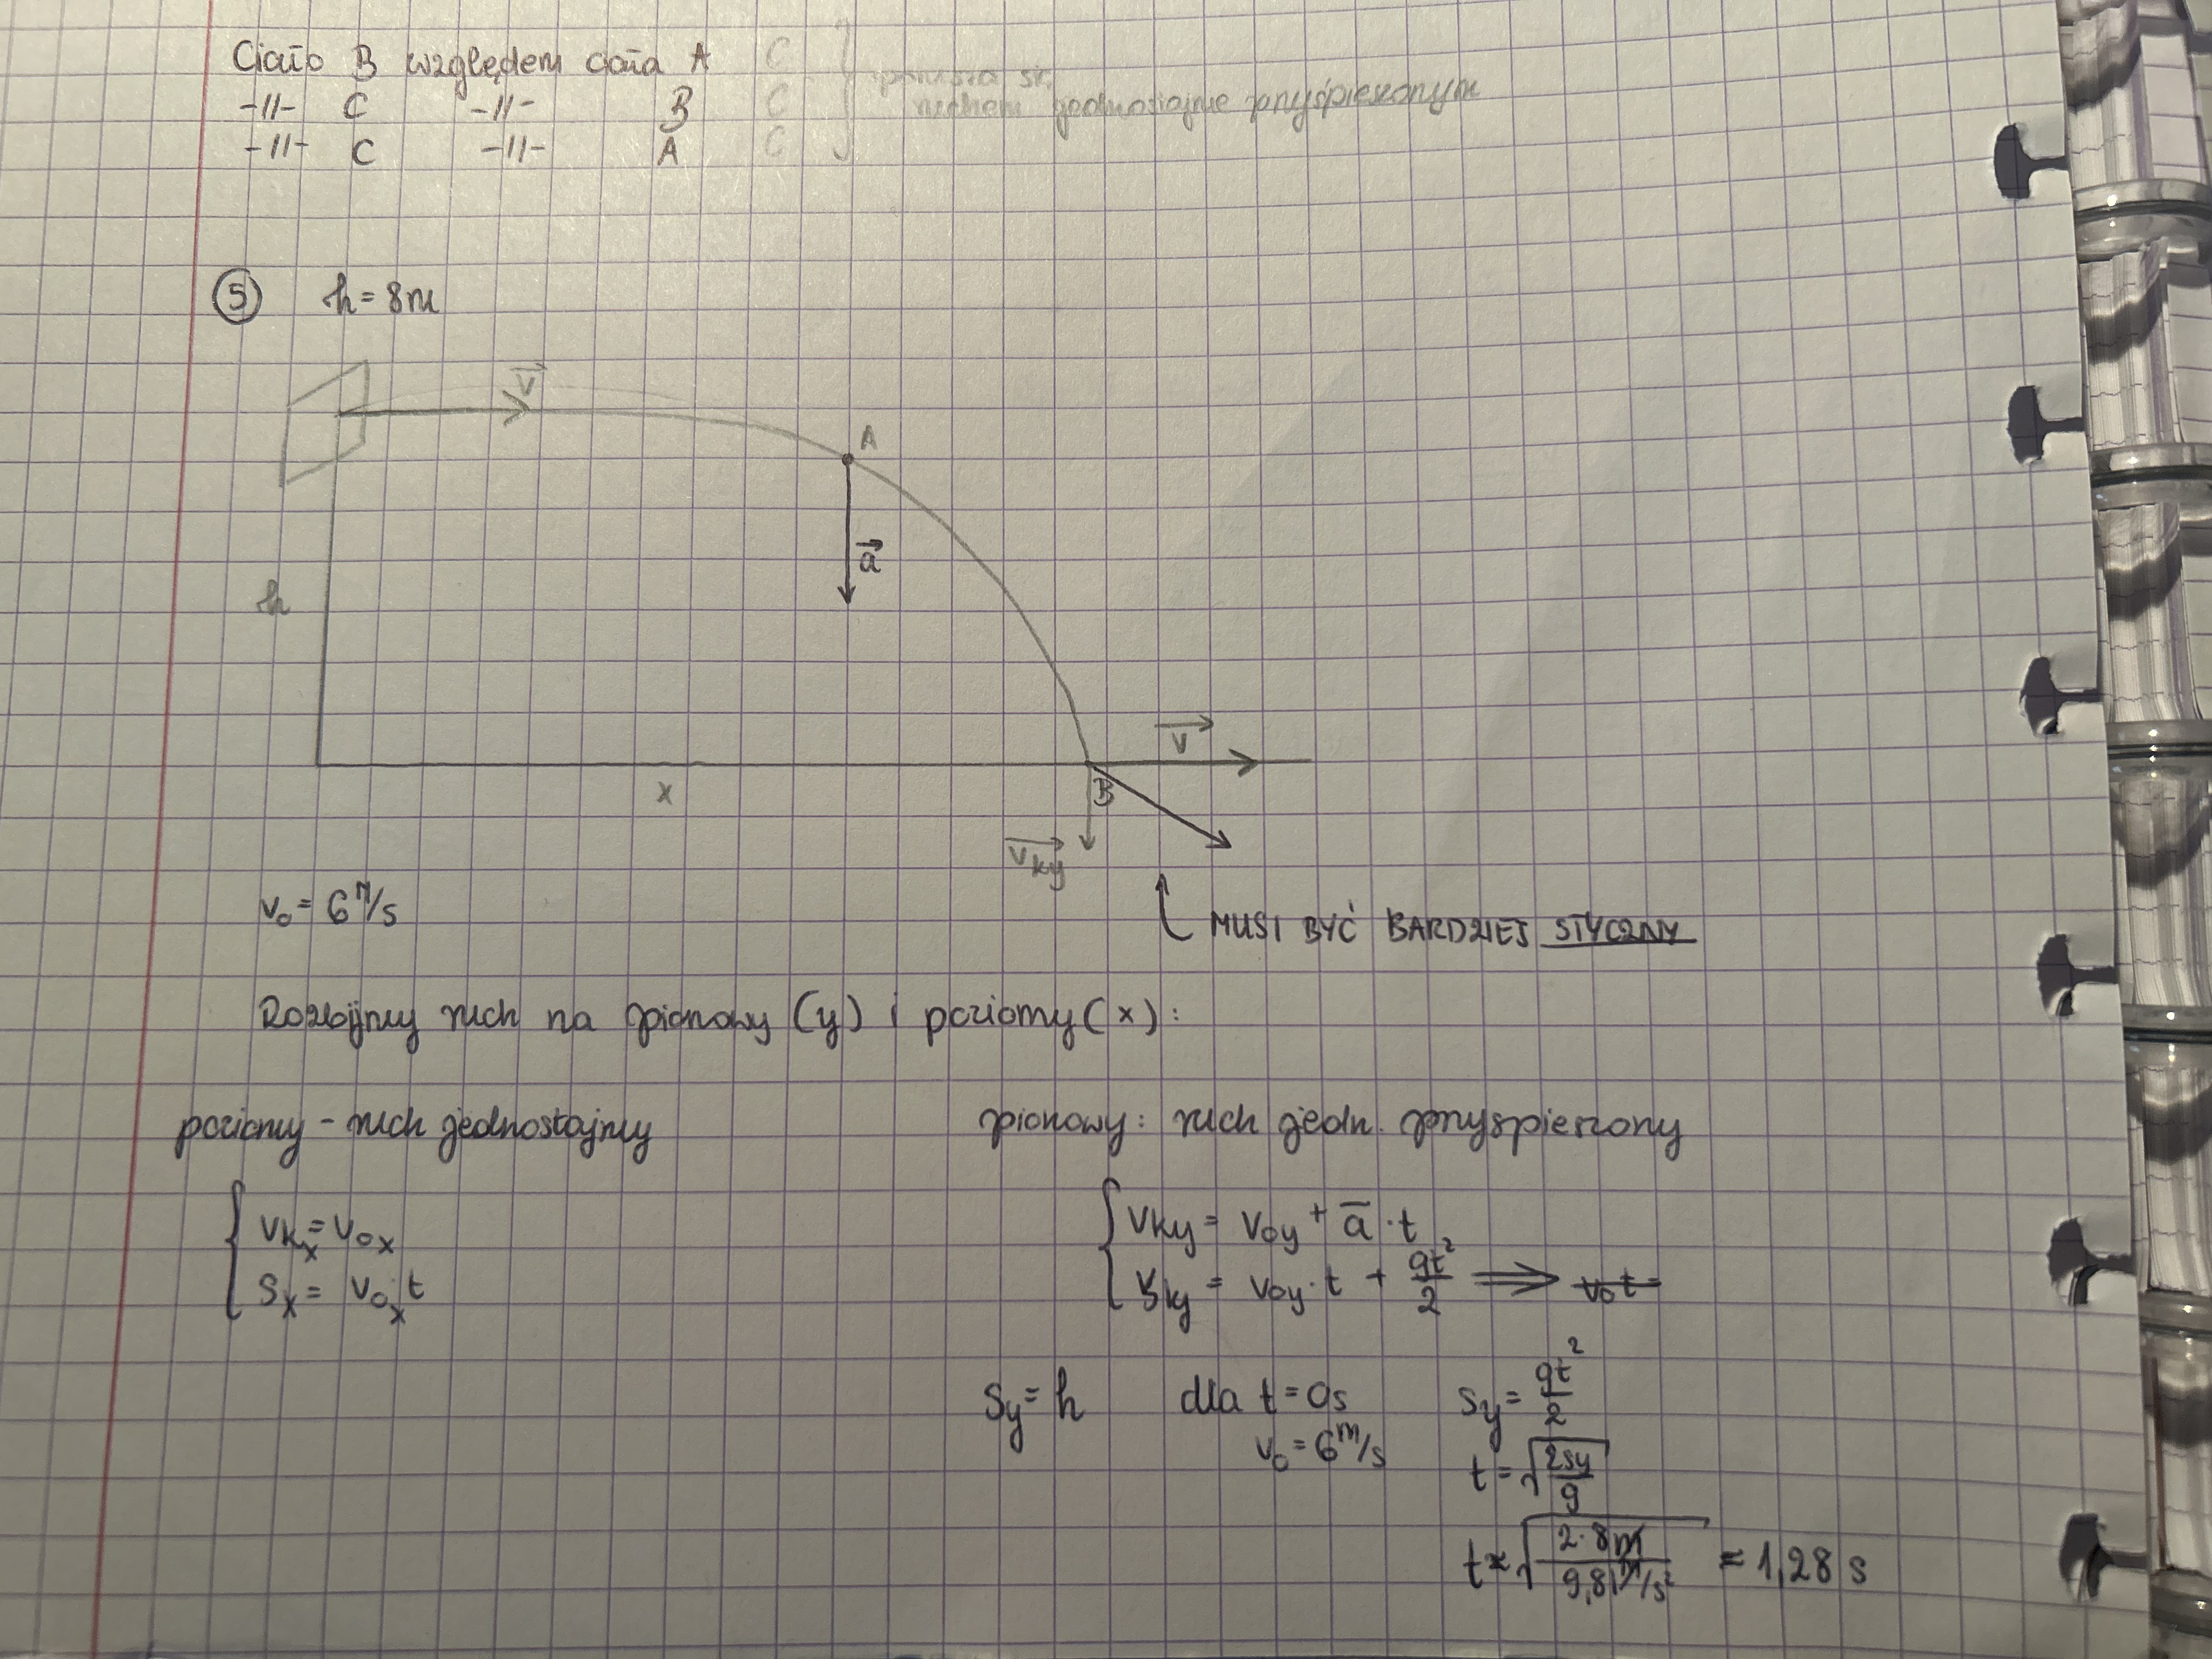 Ciało B względem ciała A C
-11- C -11- B C porusza się
ruchem jednostajnie przyśpieszonym
-11- C -11- A C
5 h = 8m
v
A
a
h
v
x
B
v_ky
v₀ = 6 m/s
MUSI BYĆ BARDZIEJ STYCZNY
Rozbijmy ruch na pionowy (y) i poziomy (x):
poziomy - ruch jednostajny
pionowy: ruch jedn. przyspieszony
v_kx = v_0x
s_x = v_0x t
v_ky = v_0y + a · t
s_ky = v_0y · t + gt²/2 ⟹ v₀t =
s_y = h dla t = 0s s_y = gt²/2
v₀ = 6 m/s t = √(2s_y/g)
t = √(2·8m / 9,81 m/s²) = 1,28 s